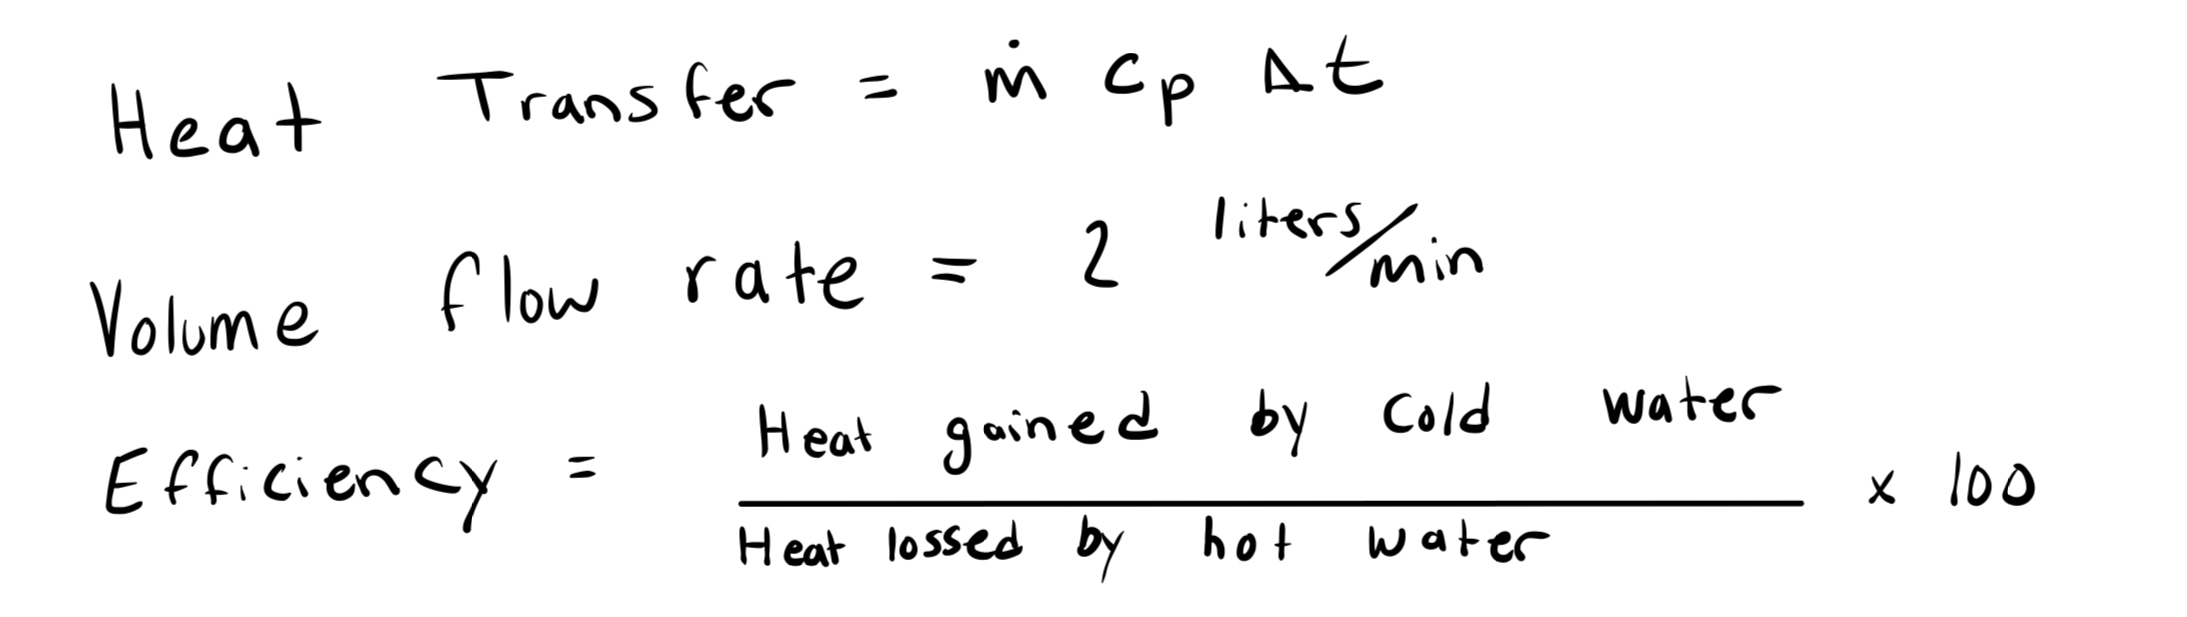 Heat Transfer = ṁ Cp Δt
Volume flow rate = 2 liters/min
Efficiency = Heat gained by cold water / Heat lossed by hot water x 100